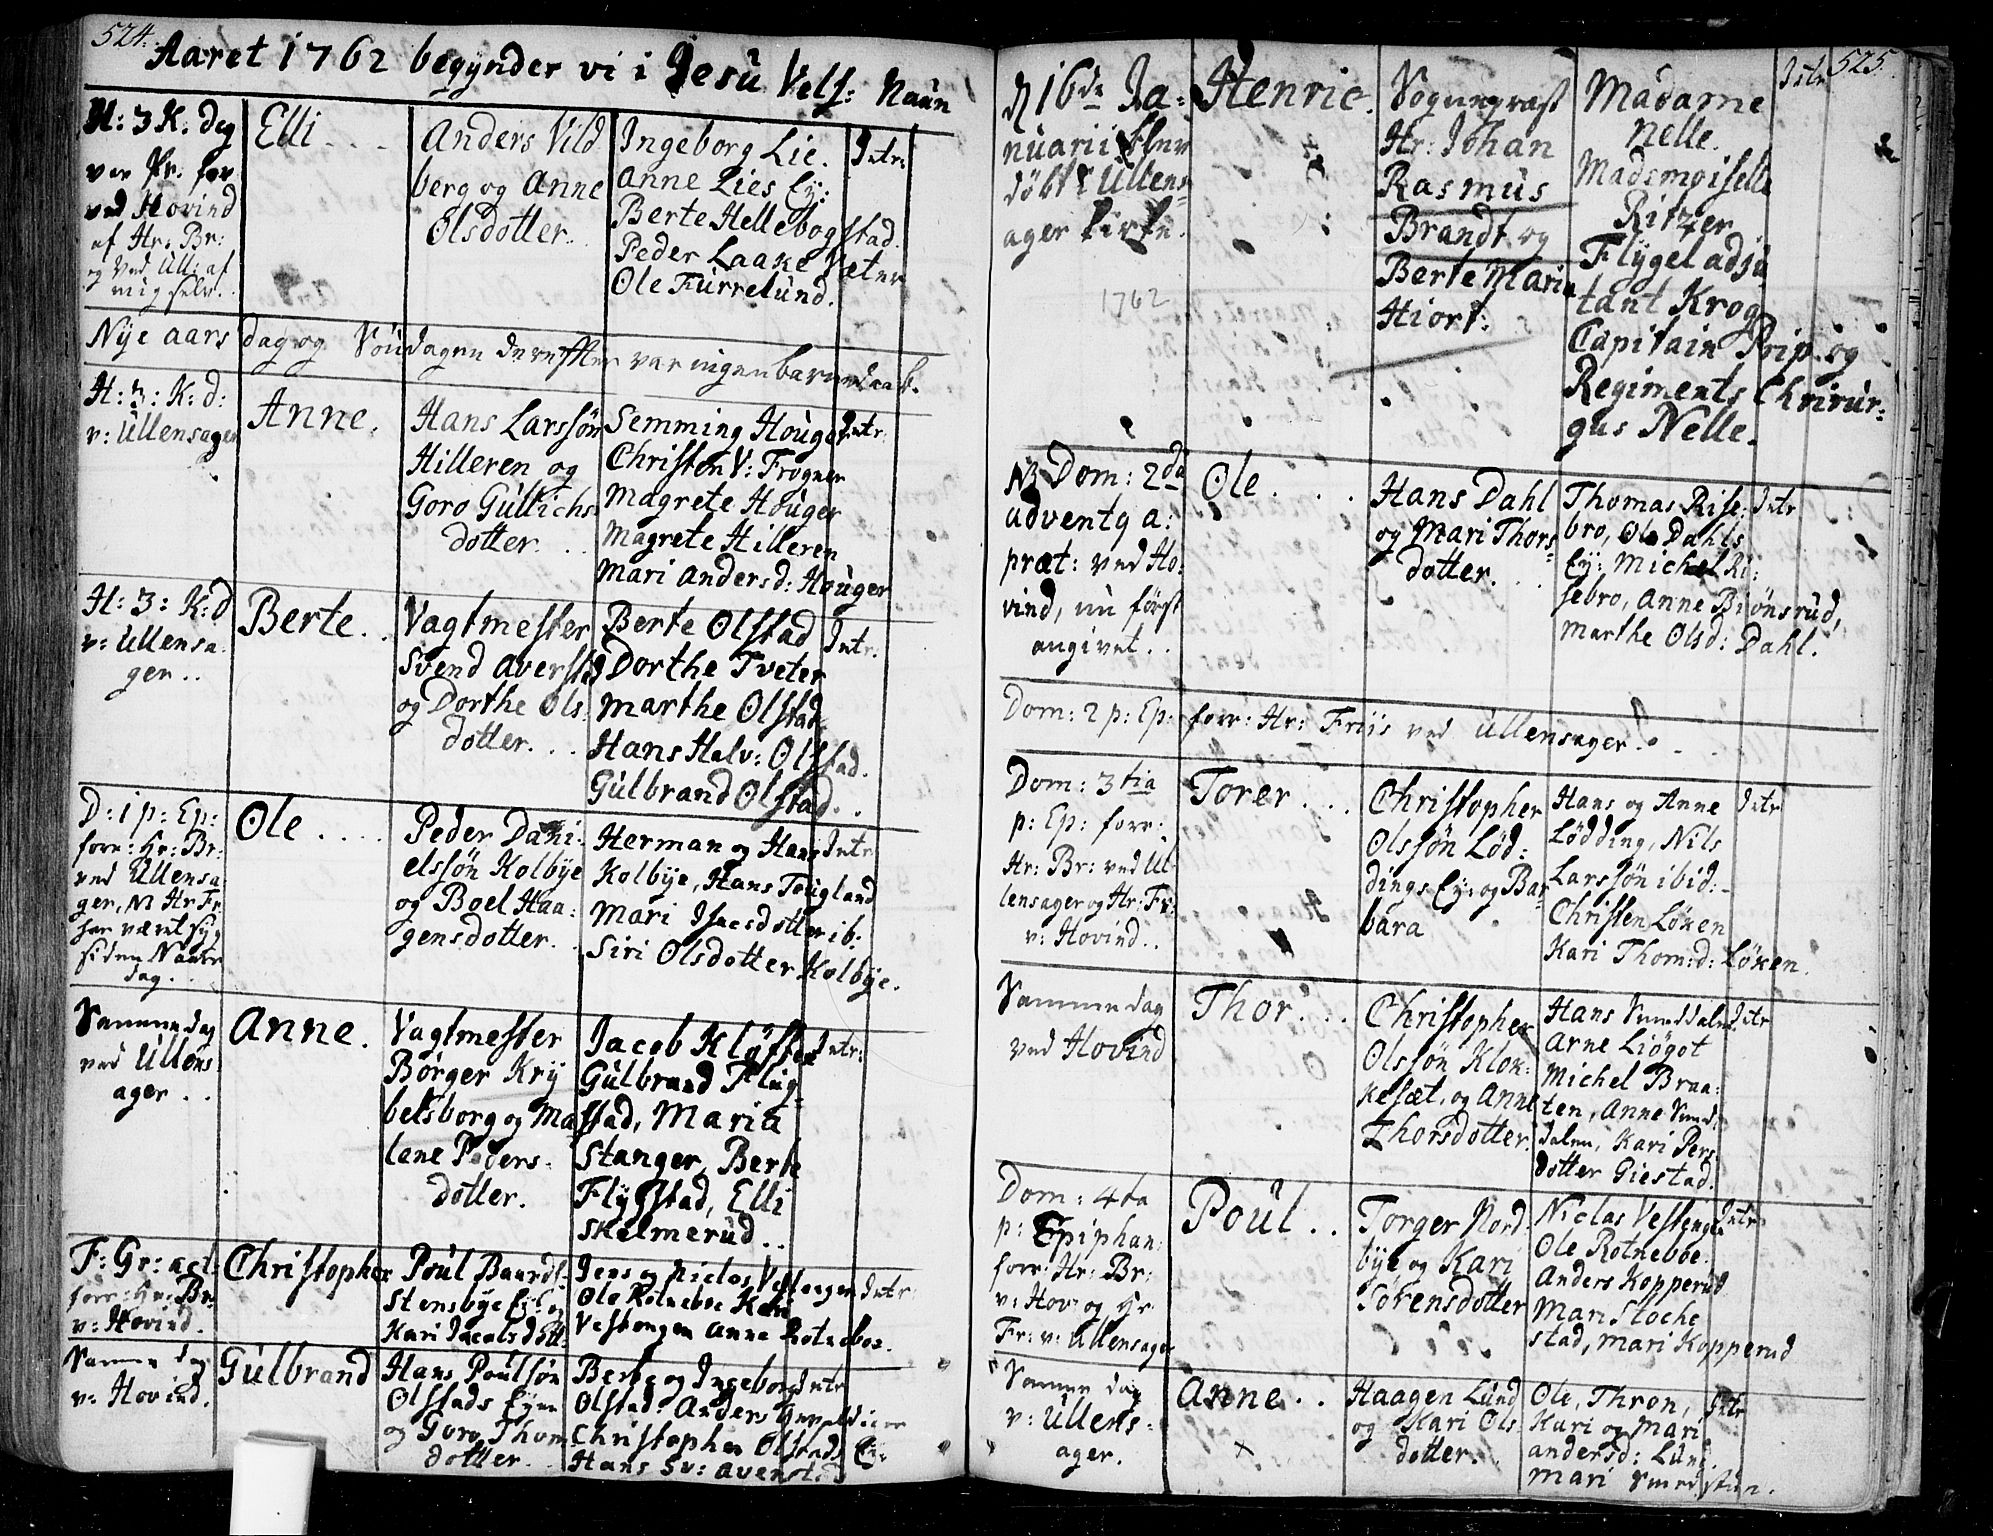 524.
Aaret 1762 begÿnder vi i Jesu Vels: Naün
H: 3 K. dag
var Pr. for
ved Hovind
af Hr. Br:
og ved Ull: af
mig selv.
Elli
Anders Vild
berg og Anne
Olsdotter.
Ingeborg Lie.
Anne Lies Ey:
Berte Hellebogstad.
Peder Laake Væter
Ole Fürrelund.
Intr:
Nÿe aars dag og Söndagen derefter var ingen barnedaab.
H: 3: K: d:
v: Ullensager
Anne.
Hans Larssön
Hilleren og
Goro Gullichs
dotter.
Semming Höuger
Christen V: Frogner
Magrete Höuger
Magrete Hilleren
Mari Andersd: Höuger
Intr:
H: 3: K: d
v: Ullensa
ger..
Berte..
Vagtmester
Svend Aversta
og Dorthe Ols
dotter.
Berte Olstad
Dorthe Tveter
Marthe Olstad
Hans Halv: Olstad.
Gülbrand Olstad..
Intr.
D: 1 p: Ep:
forr: Hr: Br:
ved Ullensa
ger, N Hr Fr:
har været sÿg
siden Naars
dag..
Ole....
Peder Dani
elssön Kolbÿe
og Boel Haa:
gensdotter.
Herman og Hans
Kolbÿe, Hans Tougland
Mari Isacsdotter ib:
Siri Olsdotter Kolbÿe.
Intr
Samme dag
ved Ullens
ager..
Anne.
Vagtmester
Børger Krÿ
belsborg og Ma
lane Peders
dotter.
Jacob Kløfter
Gülbrand Flüg
stad, Maria
Stanger, Berte
Flÿgstad, Elli
Skelmerud..
Intr:
F: Gr: act:
forr: Hr: Br:
v: Hovind.
Christopher
Poül Baards
Stensbÿe Ey: og
Kari Jacobsdott:
Jens og Niclas Vestengen
Ole Rotneboe Kari
Vestengen Anne Rotneboe.
Intr:
Samme dag
v: Hovind.
Gülbrand
Hans Poülsön
Olstads Eÿer
og Goro Thom
dotter.
Berte og Ingeborg
Olstad: Anders
Christopher Olstads Ey:
Hans Sv: Avenstad
Intr
525.
d 16de Ja:
nuarii blev
döbt i Ullens
ager kirke.
1762
Henric.
Sogneprest
Hr: Johan
Rasmus
Brandt og
Berte Maria
Hiort:
Madame
Nelle.
Mademoiselle
Ritzer
Flÿgel adju
tant Krog
Capitain Prip. og
Regiments Chirur:
gus Nelle.
Intr
N3 Dom: 2da
adventq a:
præt: ved Ho
vind, nu först
angivet..
Ole....
Hans Dahl
og Mari Thors
dotter.
Thomas Rise
bro, Ole Dahls
Ey: Michel Ri:
sebro, Anne Biönsrud,
Marthe Olsd: Dahl.
Intr
Dom: 2 p: Ep: forr: Hr: Friis ved Ullensager.
Dom: 3tia
p: Ep: forr:
Hr: Br: ved Ul
lensager og Hr: Fr:
v: Hovind..
Torer...
Christopher
Olssön Löd:
dings Ey: og Bar
bara
Hans og Anne
Lödding, Nils
Larssön ibid:
Christen Löken
Kari Thom:d: Löken.
Intr
Samme dag
ved Hovind
Thor...
Christopher
Olssön Klok
kesæt, og Anne
Thorsdotter.
Hans Smeddalen
Arne Liögot
Michel Braa:
ten, Anne Smed
dalen, Kari Pers
dotter Giestad.
Intr
Dom: 4ta
p: Epiphan:
forr: Hr: Br:
v: Hov: og Hr
Fr: v: Ullensager
Poül..
Torger Nord
bÿe og Kari
Törensdotter
Niclas Vestengen
Ole Rotneboe.
Anders Kopperud
Mari Stoche
stad, Mari Kopperud
Intr
Samme dag
v: Ullens
ager.
Anne..
Haagen Lund
og Kari Ols
dotter.
Ole, Thron,
Kari og Mari
andersd: Lund.
Mari Smedstuen.
Intr